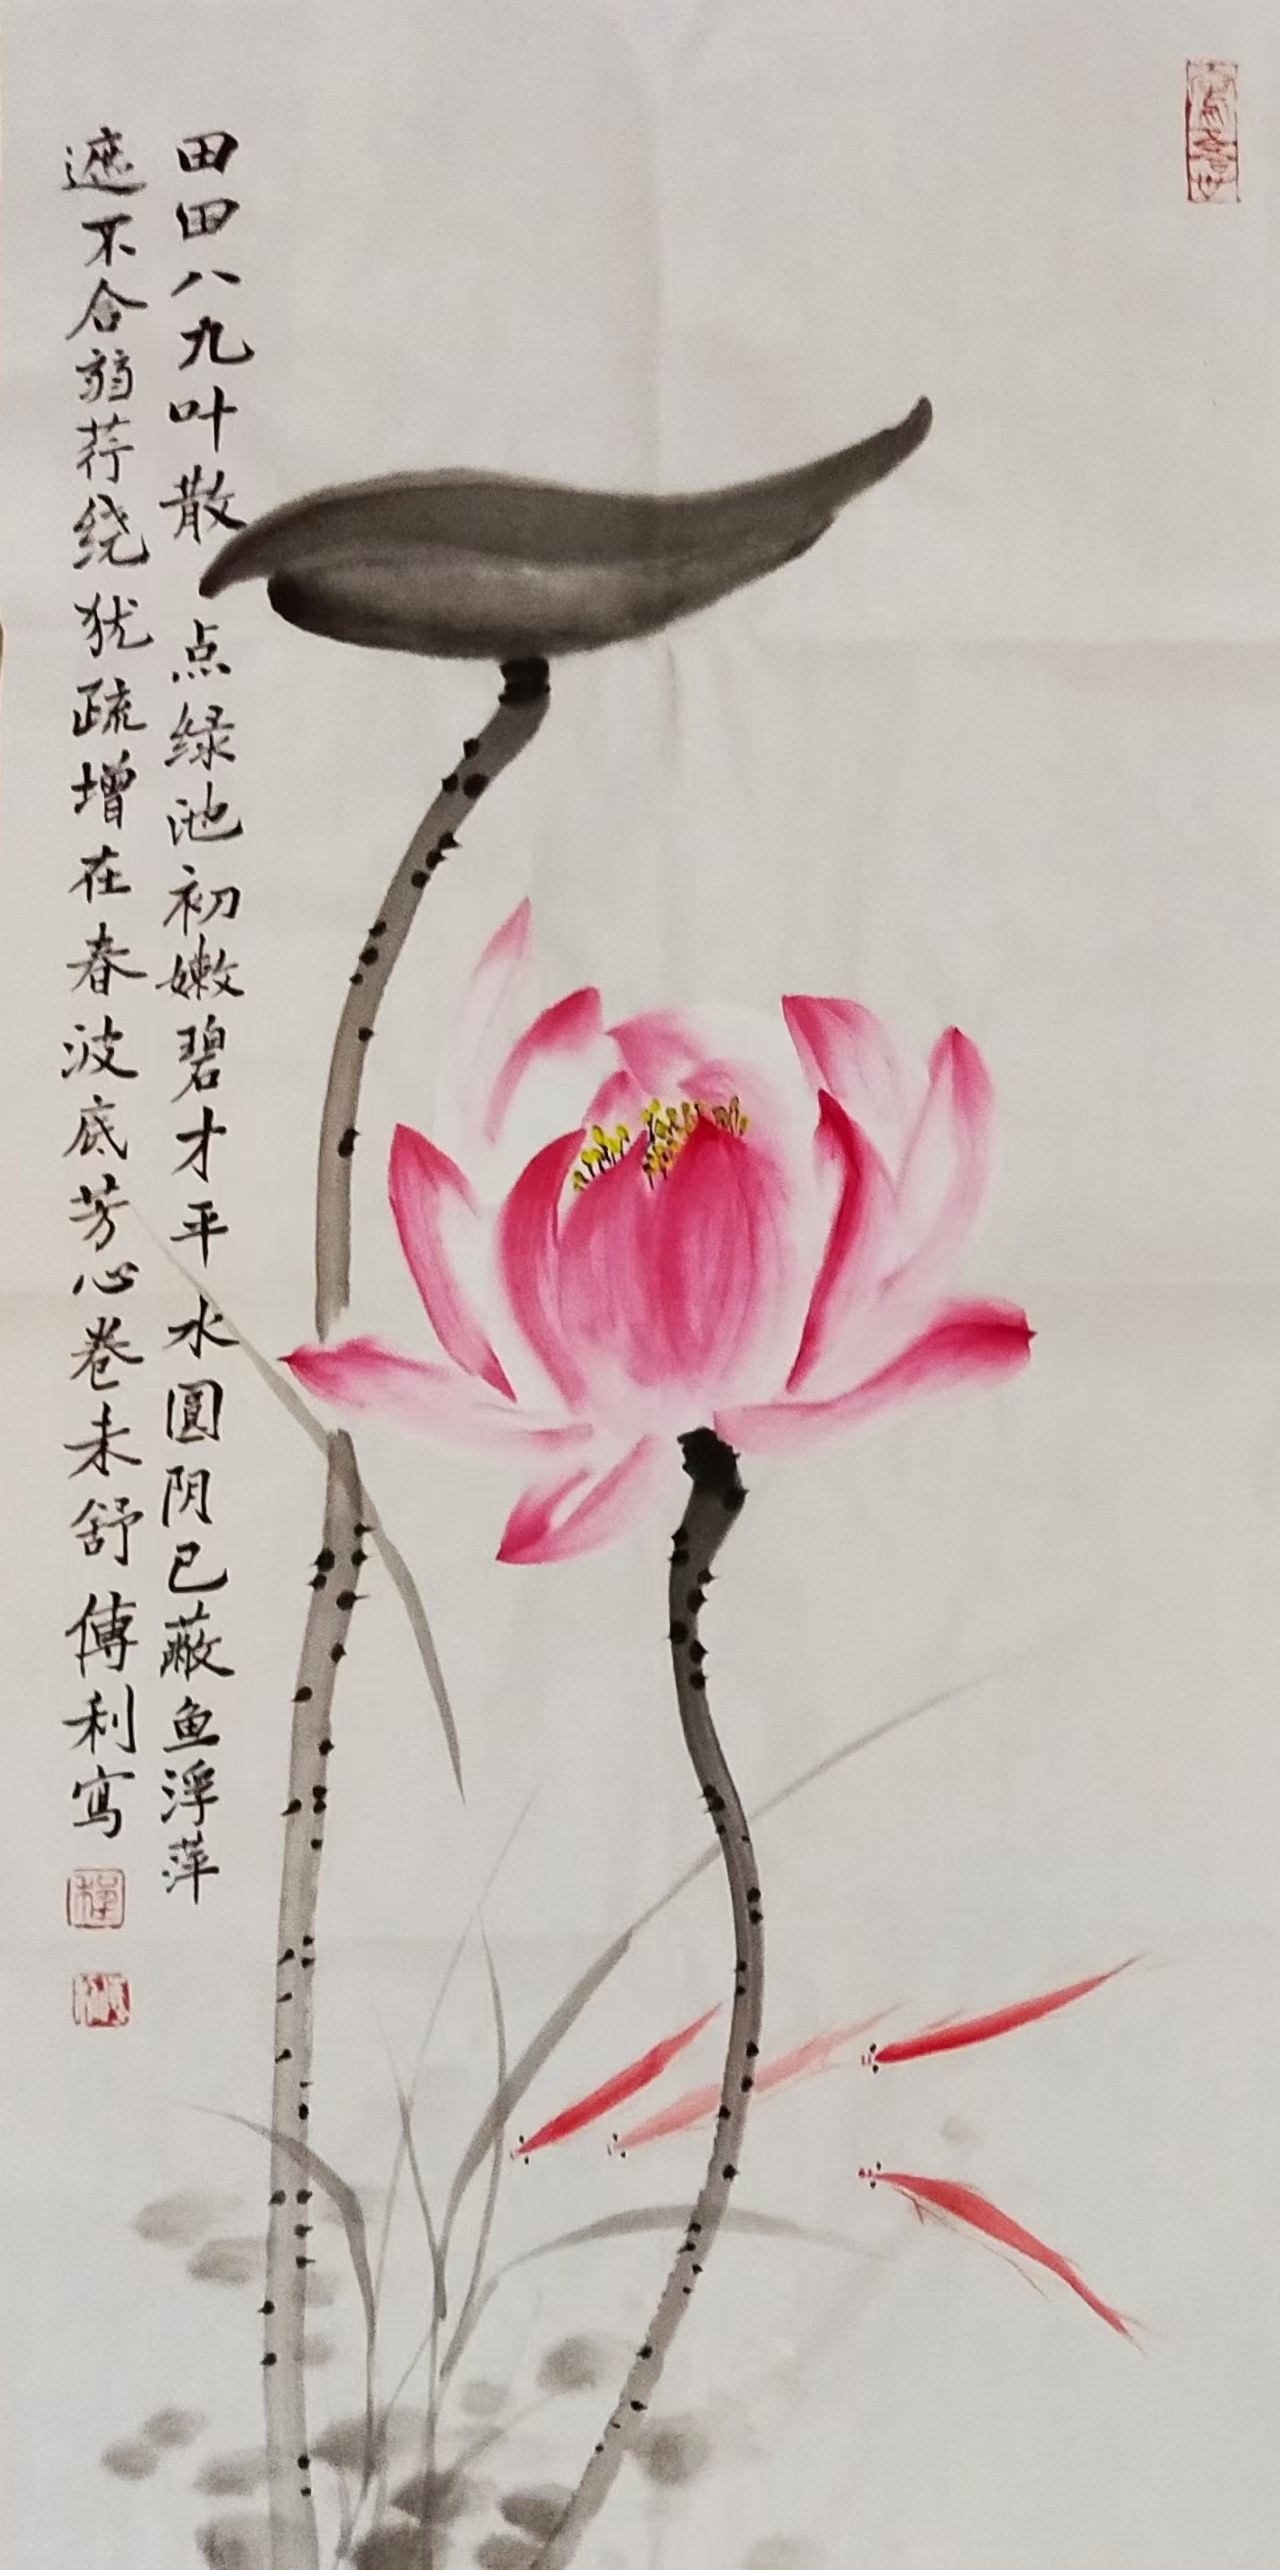 田田八九叶散点绿池初嫩碧才平水圆阴已蔽鱼浮萍
遮不合弱荇绕犹疏增在春波底芳心卷未舒傅利写